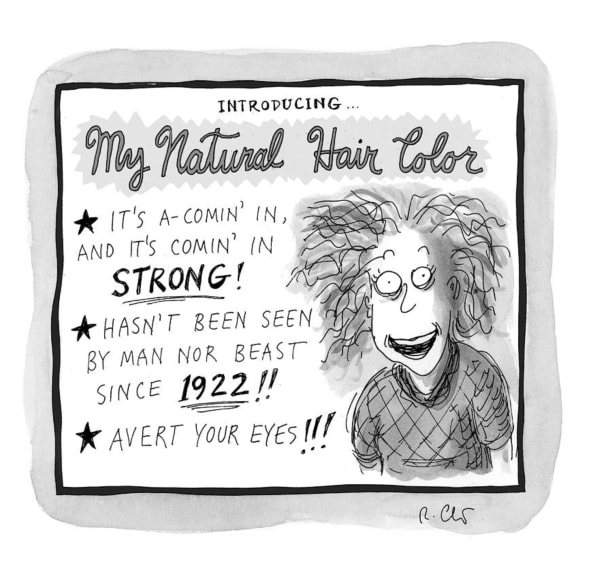 INTRODUCING...
My Natural Hair Color
★ IT'S A-COMIN' IN,
AND IT'S COMIN' IN
STRONG!
★ HASN'T BEEN SEEN
BY MAN NOR BEAST
SINCE 1922!!
★ AVERT YOUR EYES!!!